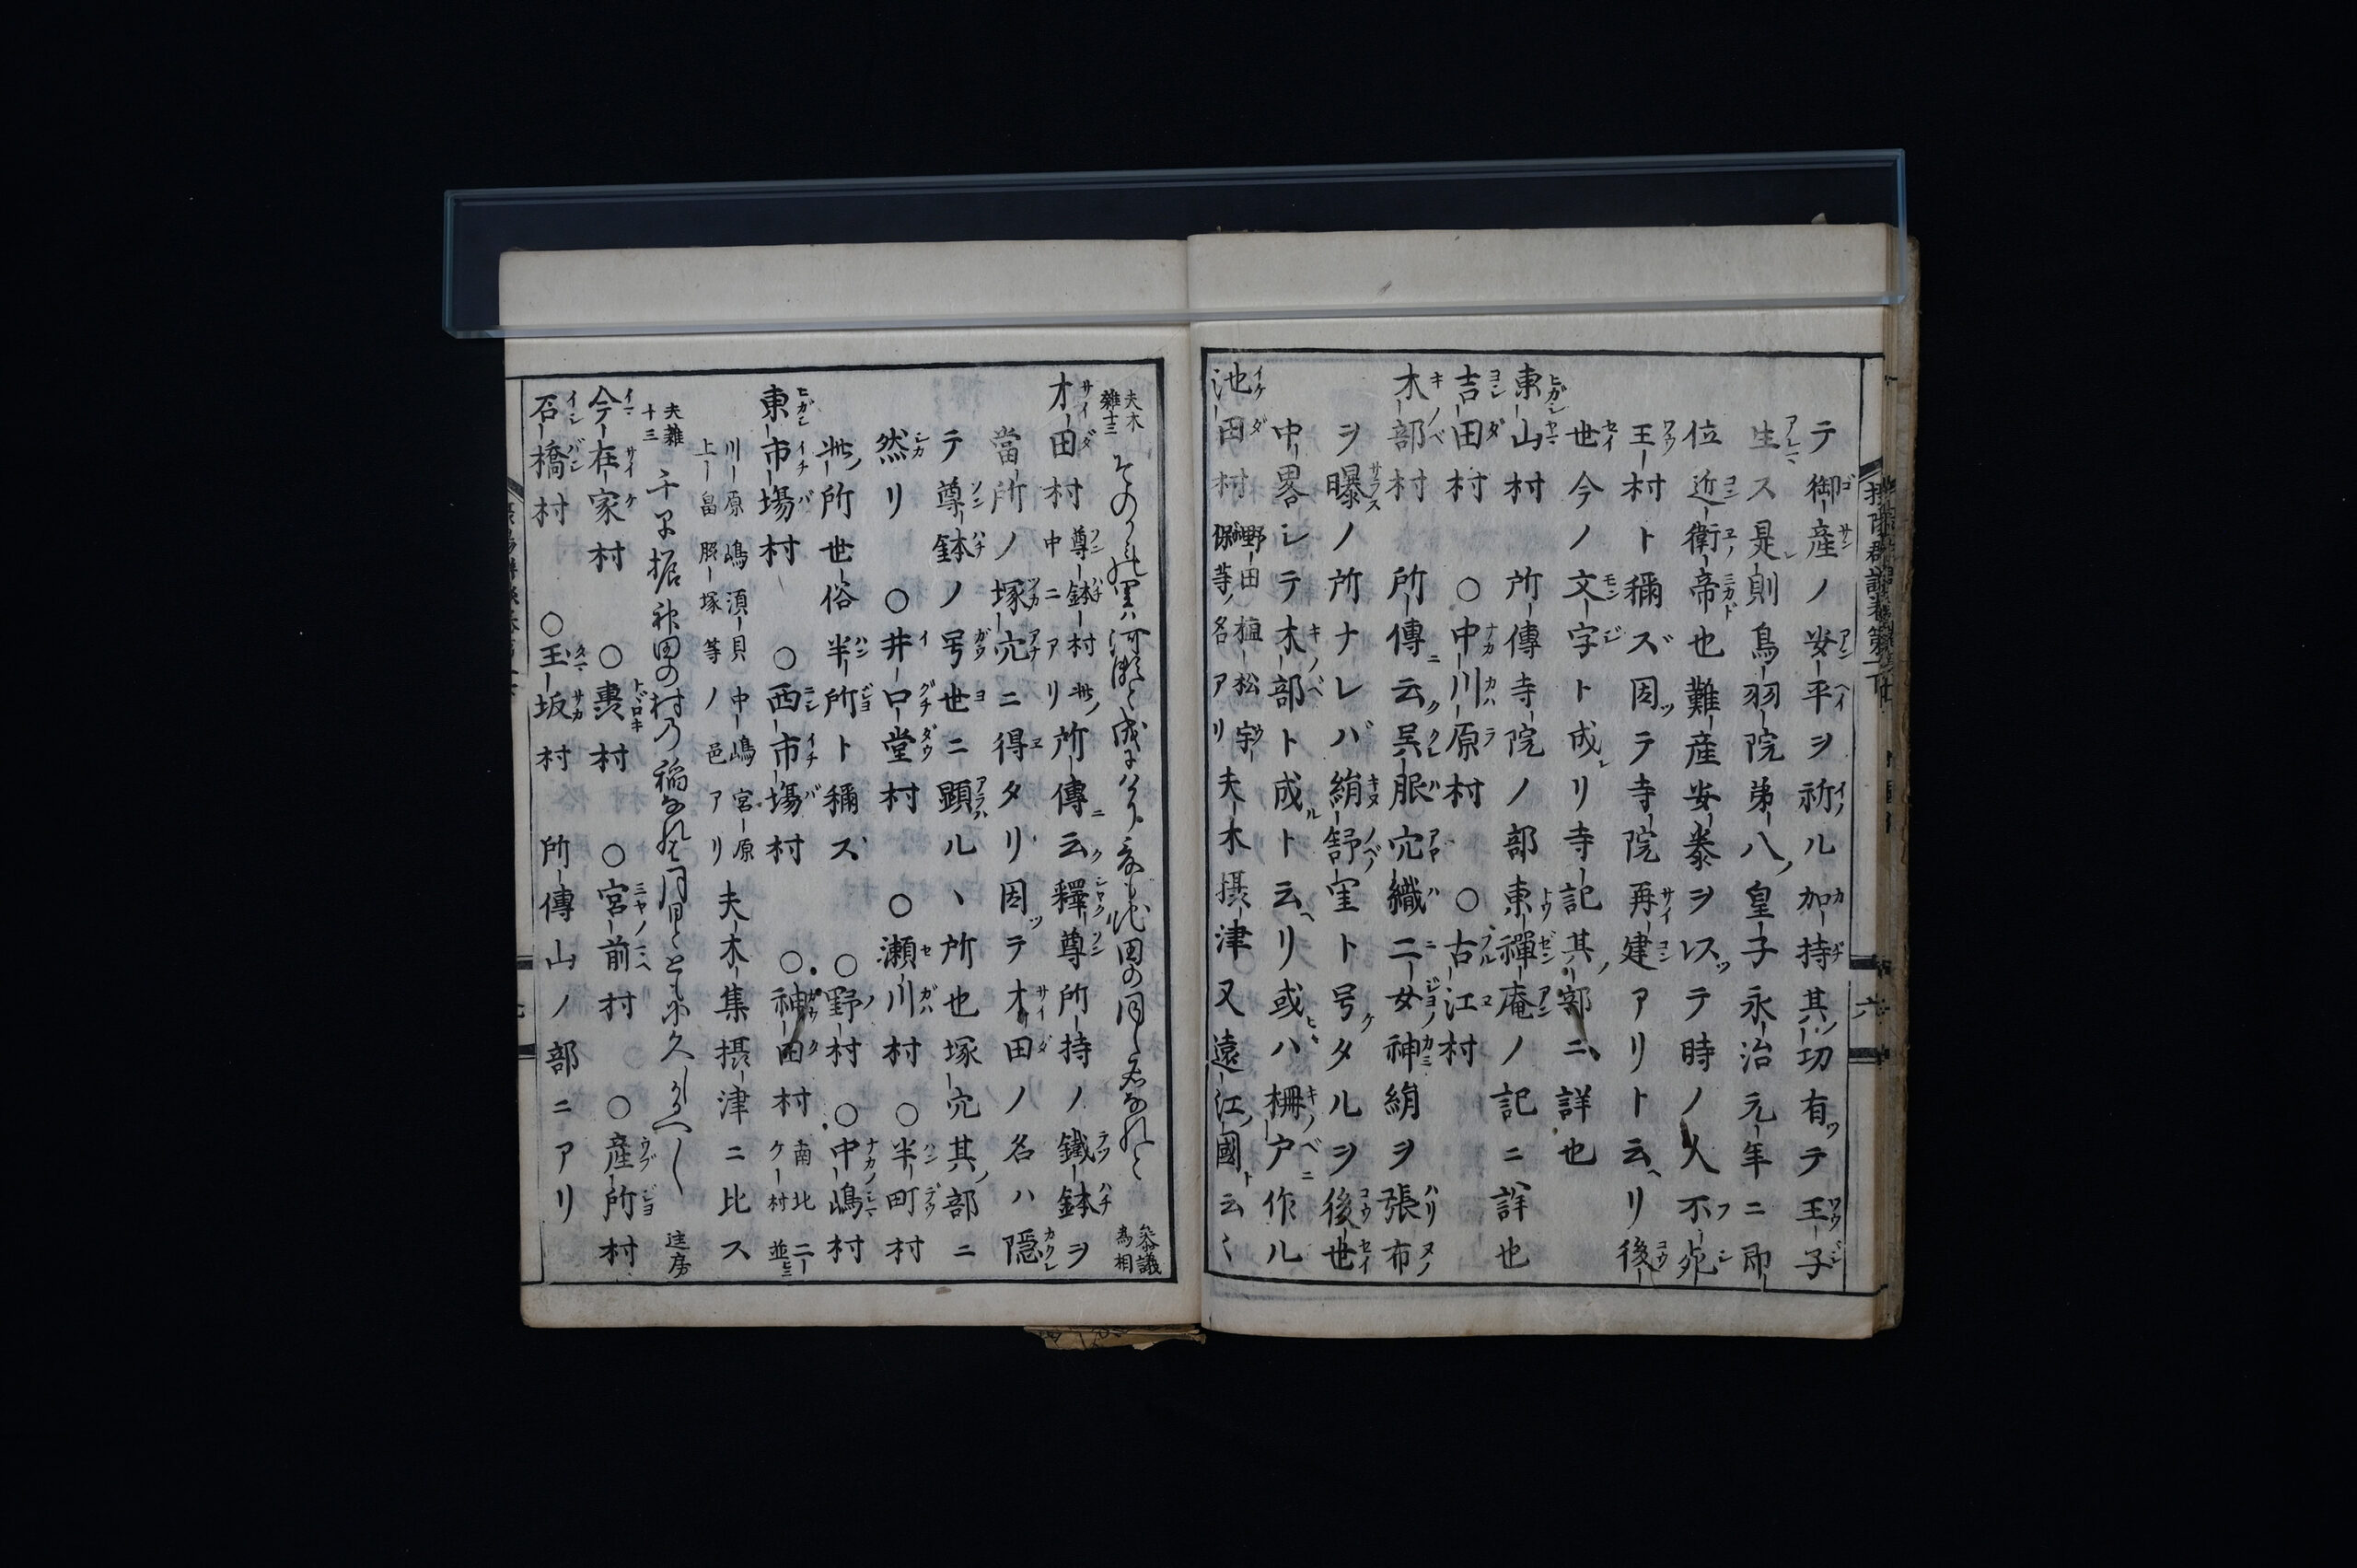 テ御産ノ安平ヲ祈ル加持其功有テ王子
生ス是則鳥羽院第八皇子永治元年ニ即
位近衛帝也難産安泰ヲ以テ時ノ人不死
王村ト稱ズ因テ寺院再建アリト云ヘリ後
世今ノ文字ト成レリ寺記其部ニ詳也
東山村 所傳寺院ノ部東禪庵ノ記ニ詳也
吉田村 ○中川原村 ○古江村
木部村 所傳云呉服穴織二女神絹ヲ張布
ヲ曝ノ所ナレバ絹舒窐ト号タルヲ後世
中畧シテ木部ト成ト云ヘリ或ハ柵戸作ル
池田村 野田 植松 宇保等ノ名アリ 夫木摂津又遠江國ト云々
夫木雑十三 そのかみの里は河瀬と成にけりこゝも池田の同し名なれと 参議為相
才田村 尊鉢村中ニアリ 此所傳云釋尊所持ノ鐵鉢ヲ
當所ノ塚穴ニ得タリ因テ才田ノ名ハ隠
テ尊鉢ノ号世ニ顕ル丶所也塚穴其部ニ
然リ ○井口堂村 ○瀬川村 ○半町村
此所世俗半所ト稱ス ○野村 ○中嶋村
東市場村 ○西市場村 ○神田村 南北二ケ村並ヒニ
川原 嶋 須貝 中嶋 宮原 上畠 照塚等ノ邑アリ 夫木集摂津ニ比ス
夫雑十三 千早振神田の村乃稲なれは月日とともに久しかるへし 匡房
今在家村 ○轟村 ○宮前村 ○産所村
石橋村 ○玉坂村 所傳山ノ部ニアリ